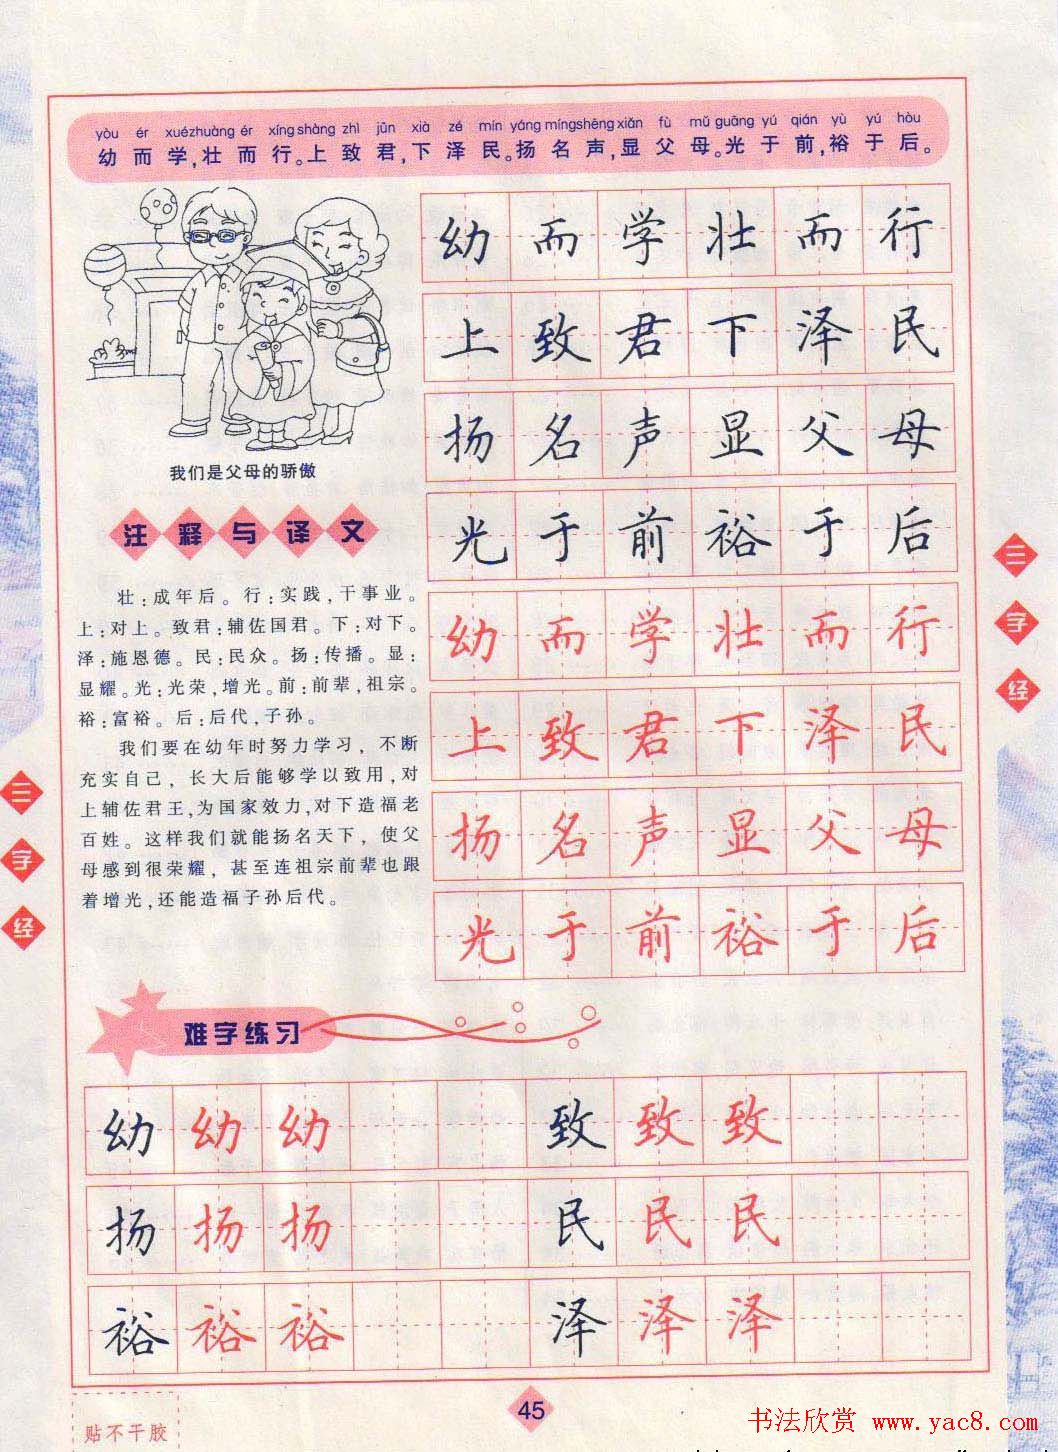 yòu ér xuézhuàng ér xíng shàng zhì jūn xià zé mín yáng míngshēng xiǎn fù mǔ guāng yú qián yù yú hòu
幼而学,壮而行。上致君,下泽民。扬名声,显父母。光于前,裕于后。
幼而学壮而行
上致君下泽民
扬名声显父母
光于前裕于后
幼而学壮而行
上致君下泽民
扬名声显父母
光于前裕于后
我们是父母的骄傲
注释与译文
壮:成年后。行:实践,干事业。
上:对上。致君:辅佐国君。下:对下。
泽:施恩德。民:民众。扬:传播。显:
显耀。光:光荣,增光。前:前辈,祖宗。
裕:富裕。后:后代,子孙。
我们要在幼年时努力学习,不断
充实自己,长大后能够学以致用,对
上辅佐君王,为国家效力,对下造福老
百姓。这样我们就能扬名天下,使父
母感到很荣耀,甚至连祖宗前辈也跟
着增光,还能造福子孙后代。
三字经
三字经
难字练习
幼幼幼 致致致
扬扬扬 民民民
裕裕裕 泽泽泽
45
贴不干胶
书法欣赏 www.yac8.com